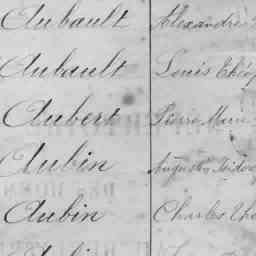 Aubault Alexandre
Aubault Louis
Aubert Pierre Marie
Aubin Auguste Isidore
Aubin Charles
Aubin